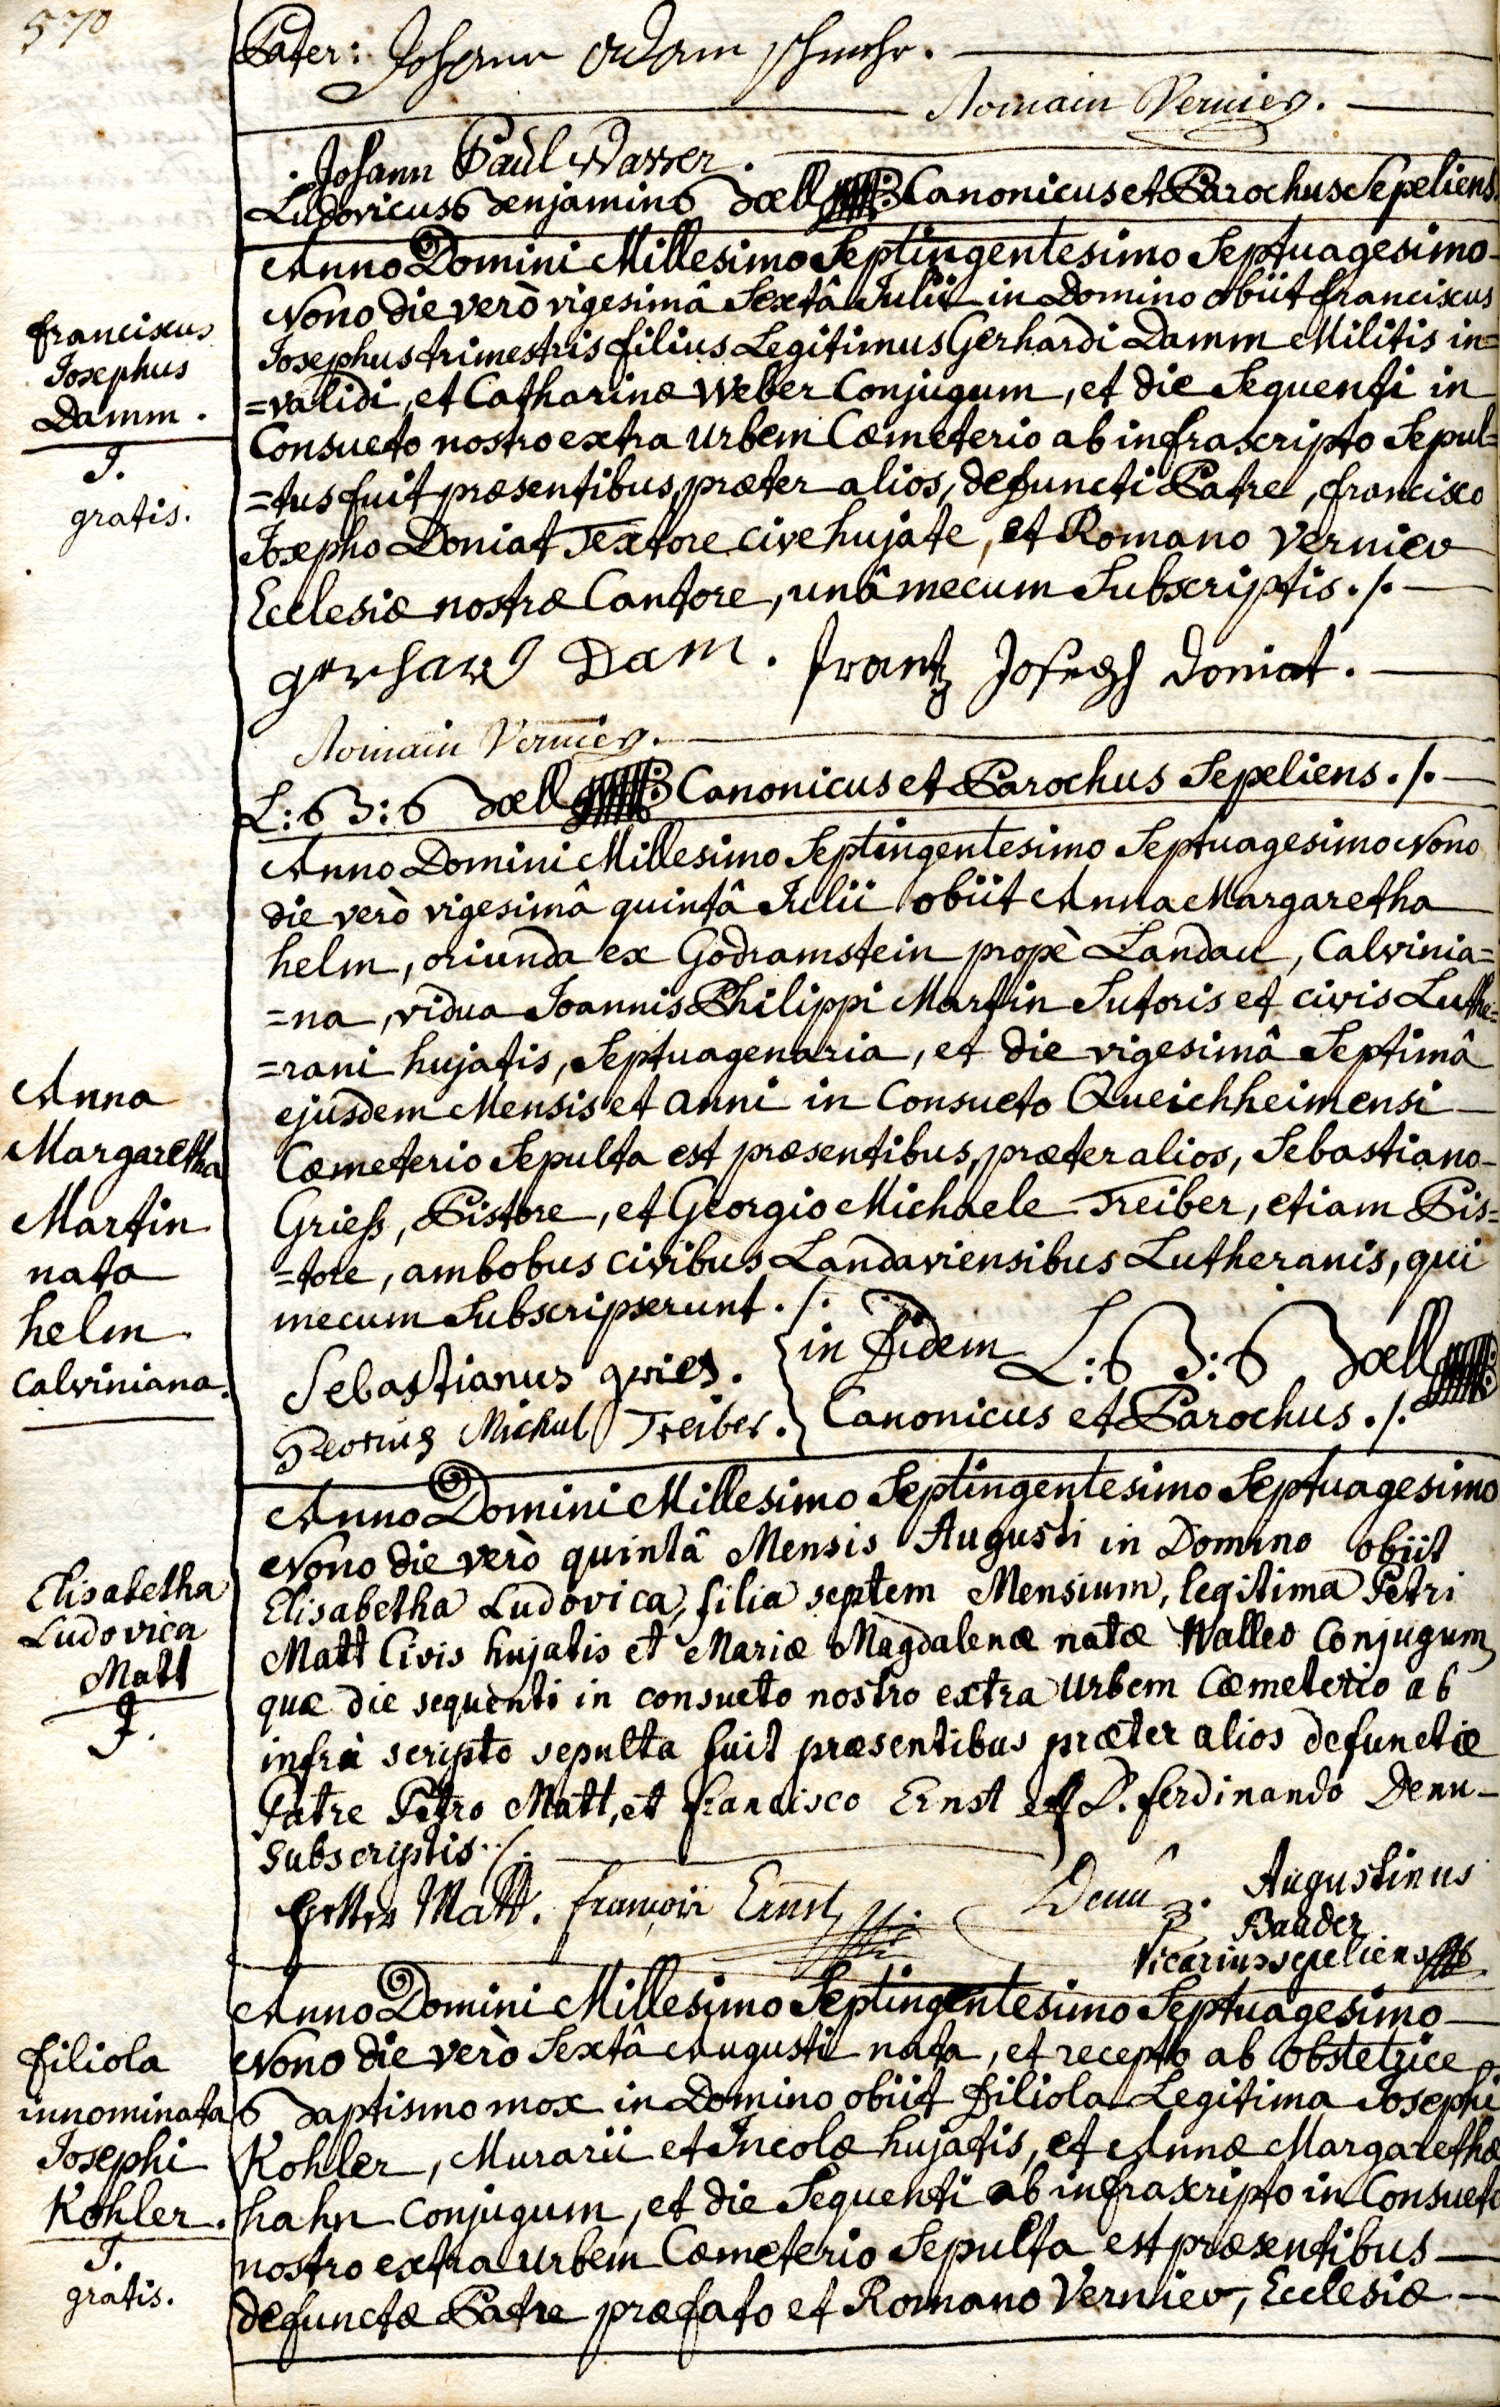 570
Pater: Johann Adam
Romain Vernier.
Johann Paul Wasser.
Ludovicus Benjamin Doell Canonicus et Parochus Sepeliens
Franciscus
Josephus
Damm.
J.
gratis.
Anno Domini Millesimo Septingentesimo Septuagesimo
Nono die verò vigesimâ Sextâ Julii in Domino obiit franciscus
Josephus trimestris filius Legitimus Gerhardi Damm Militis in=
=validi, et Catharinæ Weber Conjugum, et die Sequenti in
Consueto nostro extra urbem Cœmeterio ab infrascripto Sepul=
=tus fuit præsentibus, præter alios, defuncti Patre, francisco
Josepho Doniat Textore cive hujate, et Romano Vernier
Ecclesiæ nostræ Cantore, unâ mecum Subscriptis ./.
gerhard Dam. frantz Joseph Doniat.
Romain Vernier.
L: B: Doell Canonicus et Parochus Sepeliens ./.
Anna
Margaretha
Martin
nata
helm
Calviniana.
Anno Domini Millesimo Septingentesimo Septuagesimo Nono
die verò vigesimâ quintâ Julii obiit Anna Margaretha
helm, oriunda ex Godramstein propè Landau, Calvinia=
=na, vidua Joannis Philippi Martin Sutoris et civis Luthe=
=rani hujatis, Septuagenaria, et die vigesimâ Septimâ
ejusdem Mensis et anni in Consueto Queichheimensi
Cœmeterio Sepulta est præsentibus, præter alios, Sebastiano
Griess, Pistore, et Georgio Michaele Treiber, etiam Pis=
=tore, ambobus civibus Landaviensibus Lutheranis, qui
mecum Subscripserunt ./.
Sebastianus gries.
Georius Michel Treiber.
in fidem L: B: Doell
Canonicus et Parochus ./.
Elisabetha
Ludovica
Matt
J.
Anno Domini Millesimo Septingentesimo Septuagesimo
Nono die verò quintâ Mensis Augusti in Domino obiit
Elisabetha Ludovica, filia septem Mensium, legitima Petri
Matt Civis hujatis et Mariæ Magdalenæ natæ Walleo Conjugum,
quæ die sequenti in consueto nostro extra Urbem Cæmeterio ab
infrà scripto sepulta fuit præsentibus præter alios defunctæ
Patre Petro Matt, et Francisco Ernst et D. ferdinando Denu
Subscriptis ./.
Petter Matt. françois Ernst Denu. Augustinus
Bander
Vicarius sepeliens
filiola
innominata
Josephi
Kohler.
J.
gratis.
Anno Domini Millesimo Septingentesimo Septuagesimo
Nono die verò Sextâ Augusti nata, et recepto ab Obstetrice
Baptismo mox in Domino obiit filiola Legitima Josephi
Kohler, Murarii et Incolæ hujatis, et Annæ Margarethæ
hahn Conjugum, et die Sequenti ab infrascripto in Consueto
nostro extra urbem Cœmeterio Sepulta est præsentibus
defunctæ Patre præfato et Romano Vernier, Ecclesiæ